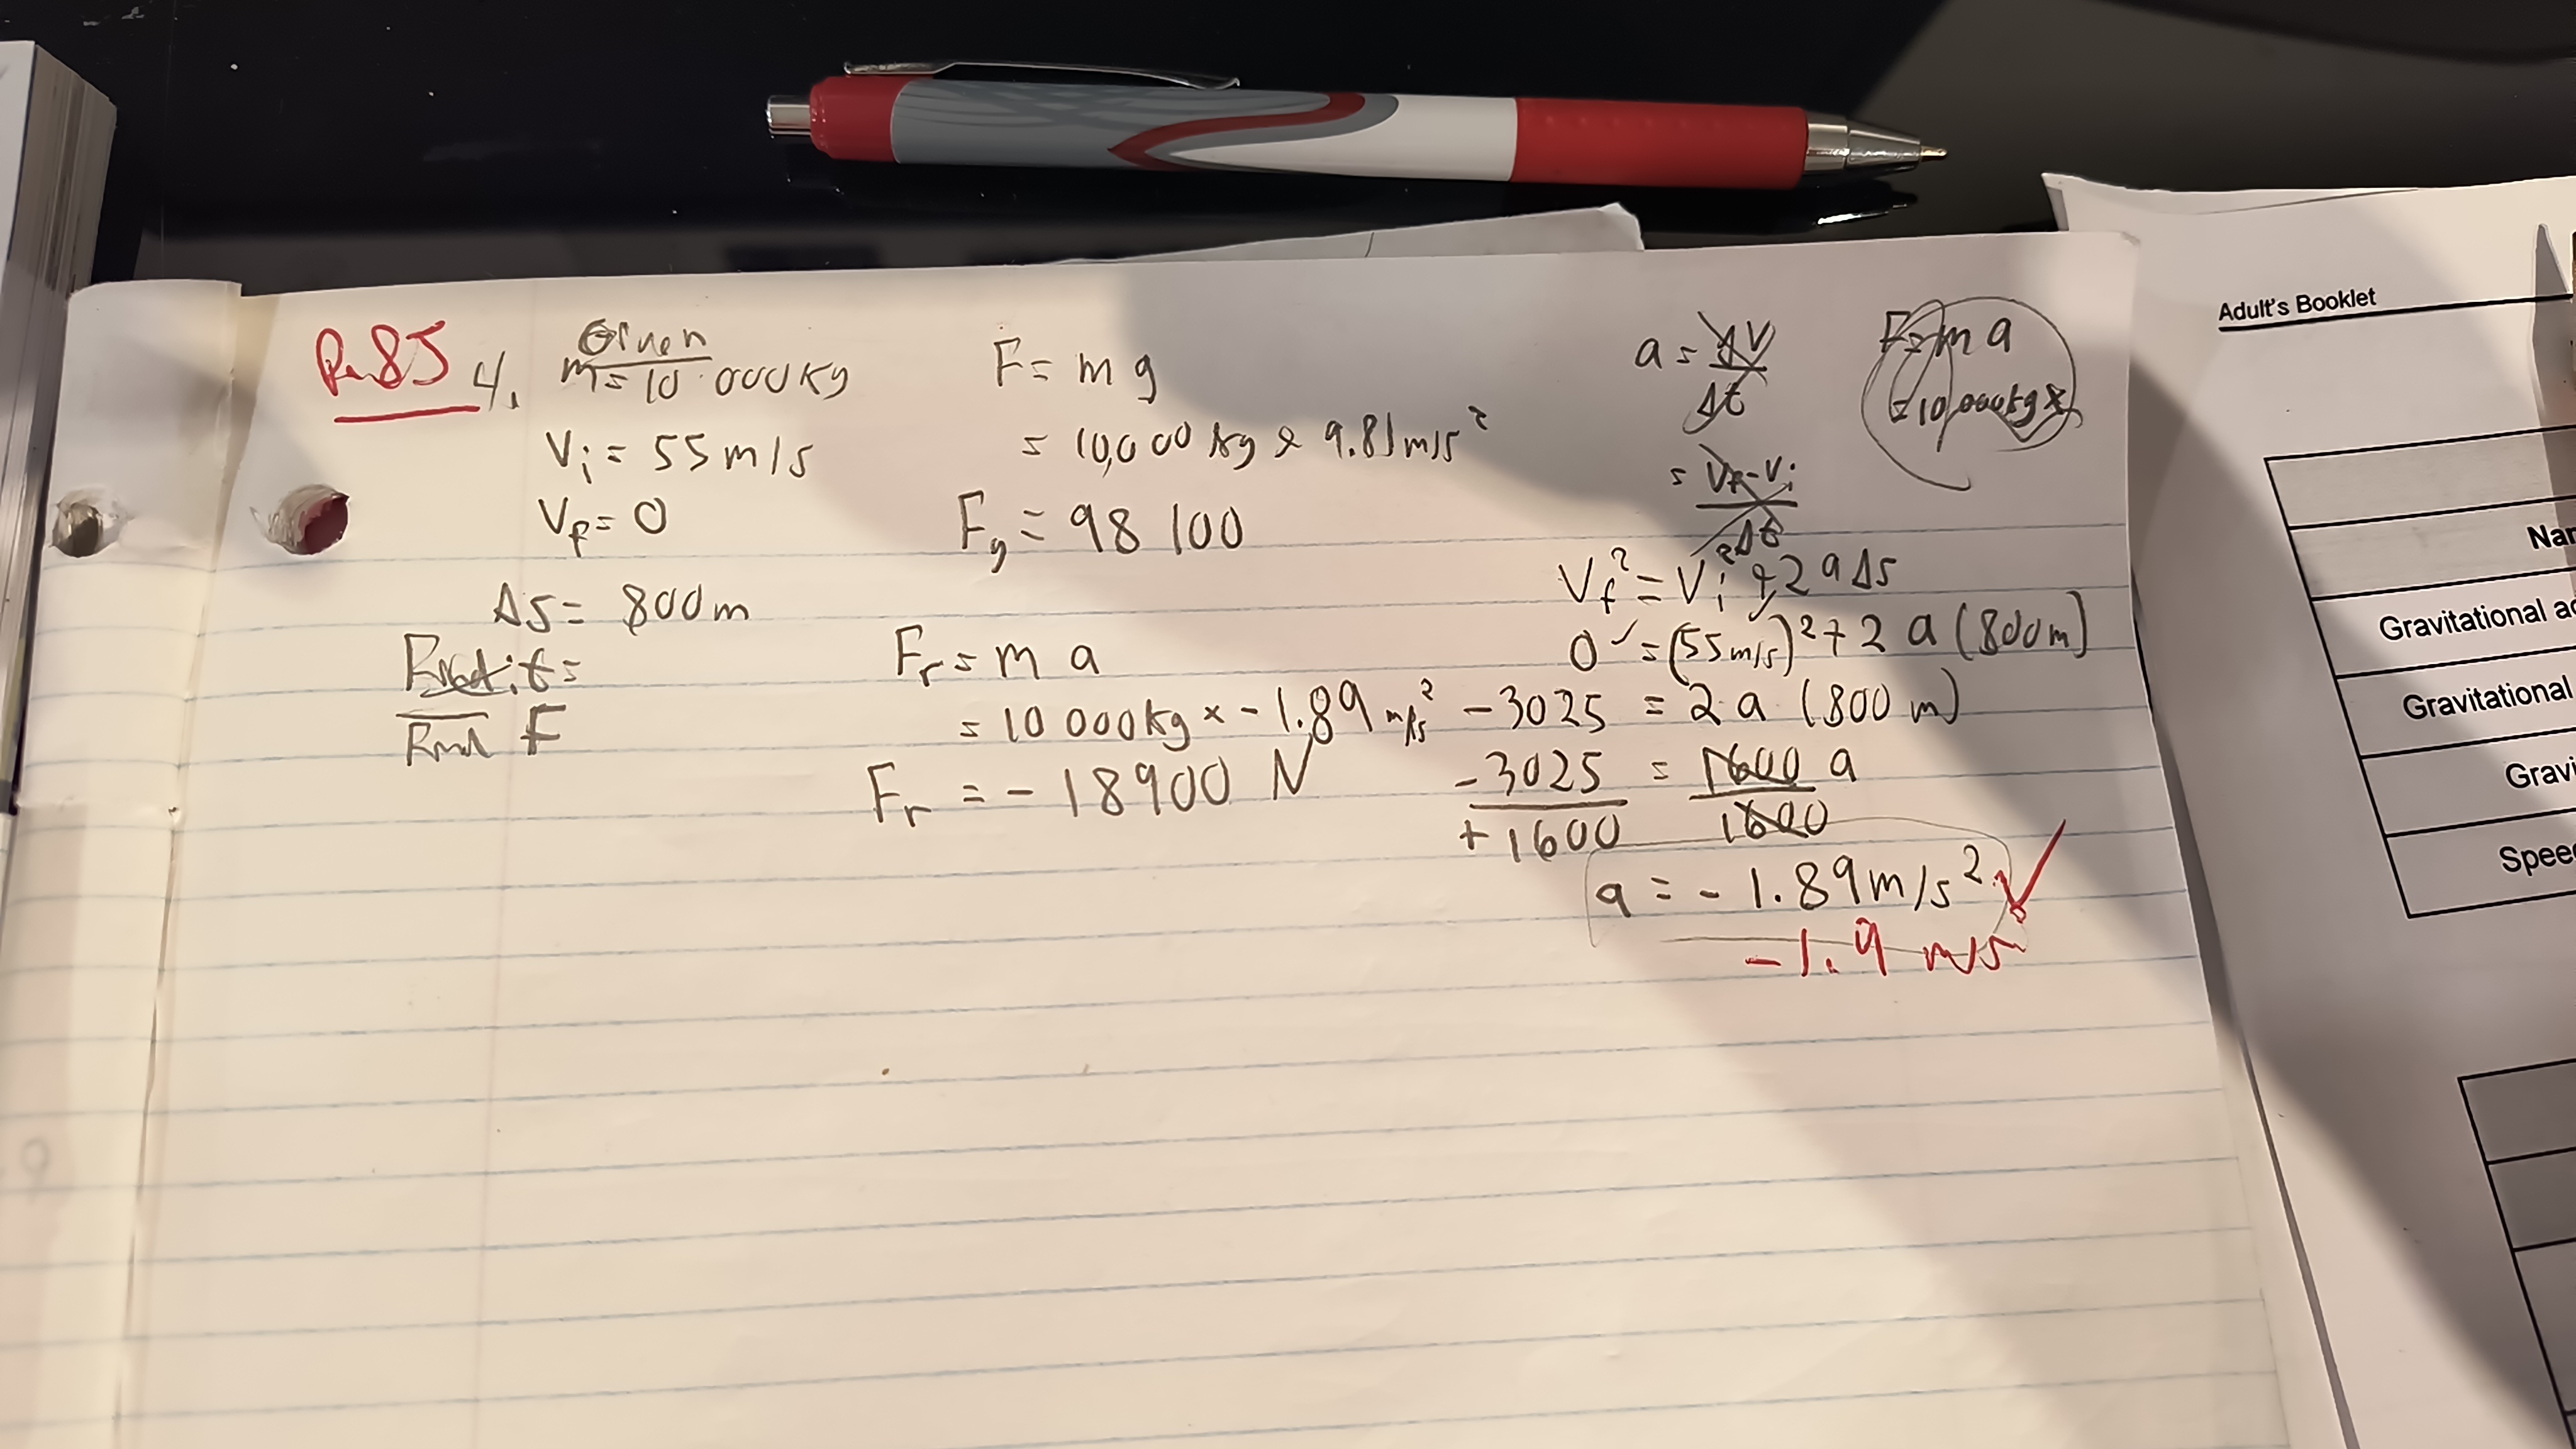 P.85 4. Given
m = 10 000 kg
Vi = 55 m/s
Vf = 0
Δs = 800 m
Find F
F = m g
= 10,000 kg x 9.81 m/s²
Fg = 98 100
Fr = m a
= 10 000 kg x -1.89 m/s²
Fr = -18900 N
a = ΔV
Δt
= Vf - Vi
Δt
F = m a
= 10,000 kg x
Vf² = Vi² + 2 a Δs
0 = (55 m/s)² + 2 a (800 m)
-3025 = 2 a (800 m)
-3025 = 1600 a
+1600 1600
a = -1.89 m/s²
-1.9 m/s²
Adult's Booklet
Gravitational